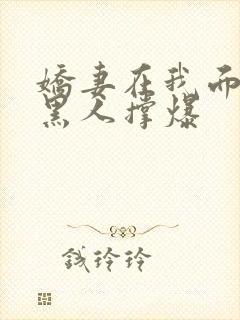 娇妻在我面
黑人撑爆
钱玲玲